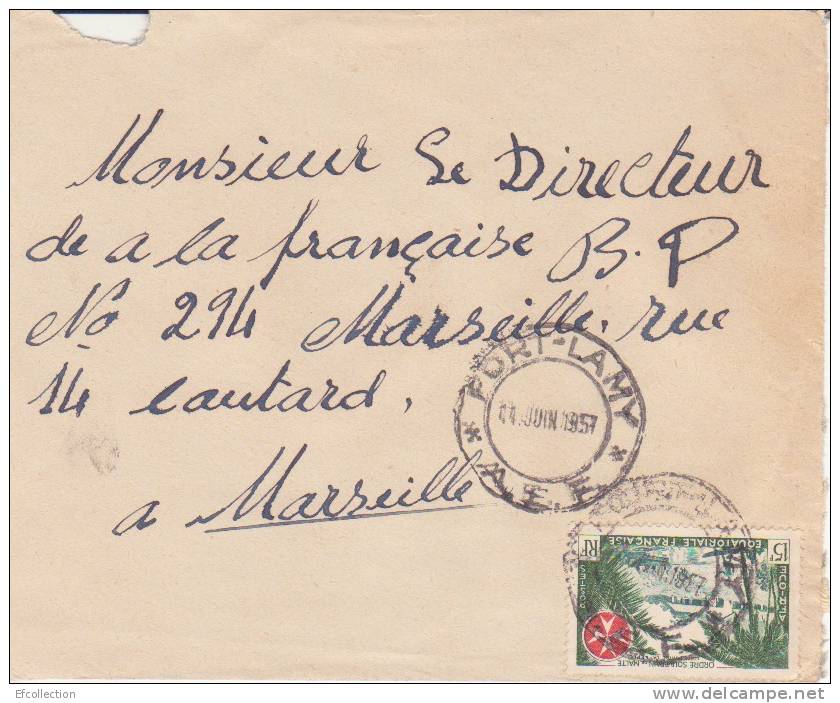 Monsieur Le Directeur
de a la française B.P
No 294 Marseille. rue
14 Coutard,
a Marseille
FORT-LAMY
11 JUIN 1957
A.E.F.
15F RF
EQUATORIALE FRANÇAISE
ORDRE SOUVERAIN DE MALTE
Efcollection
www.delcampe.net